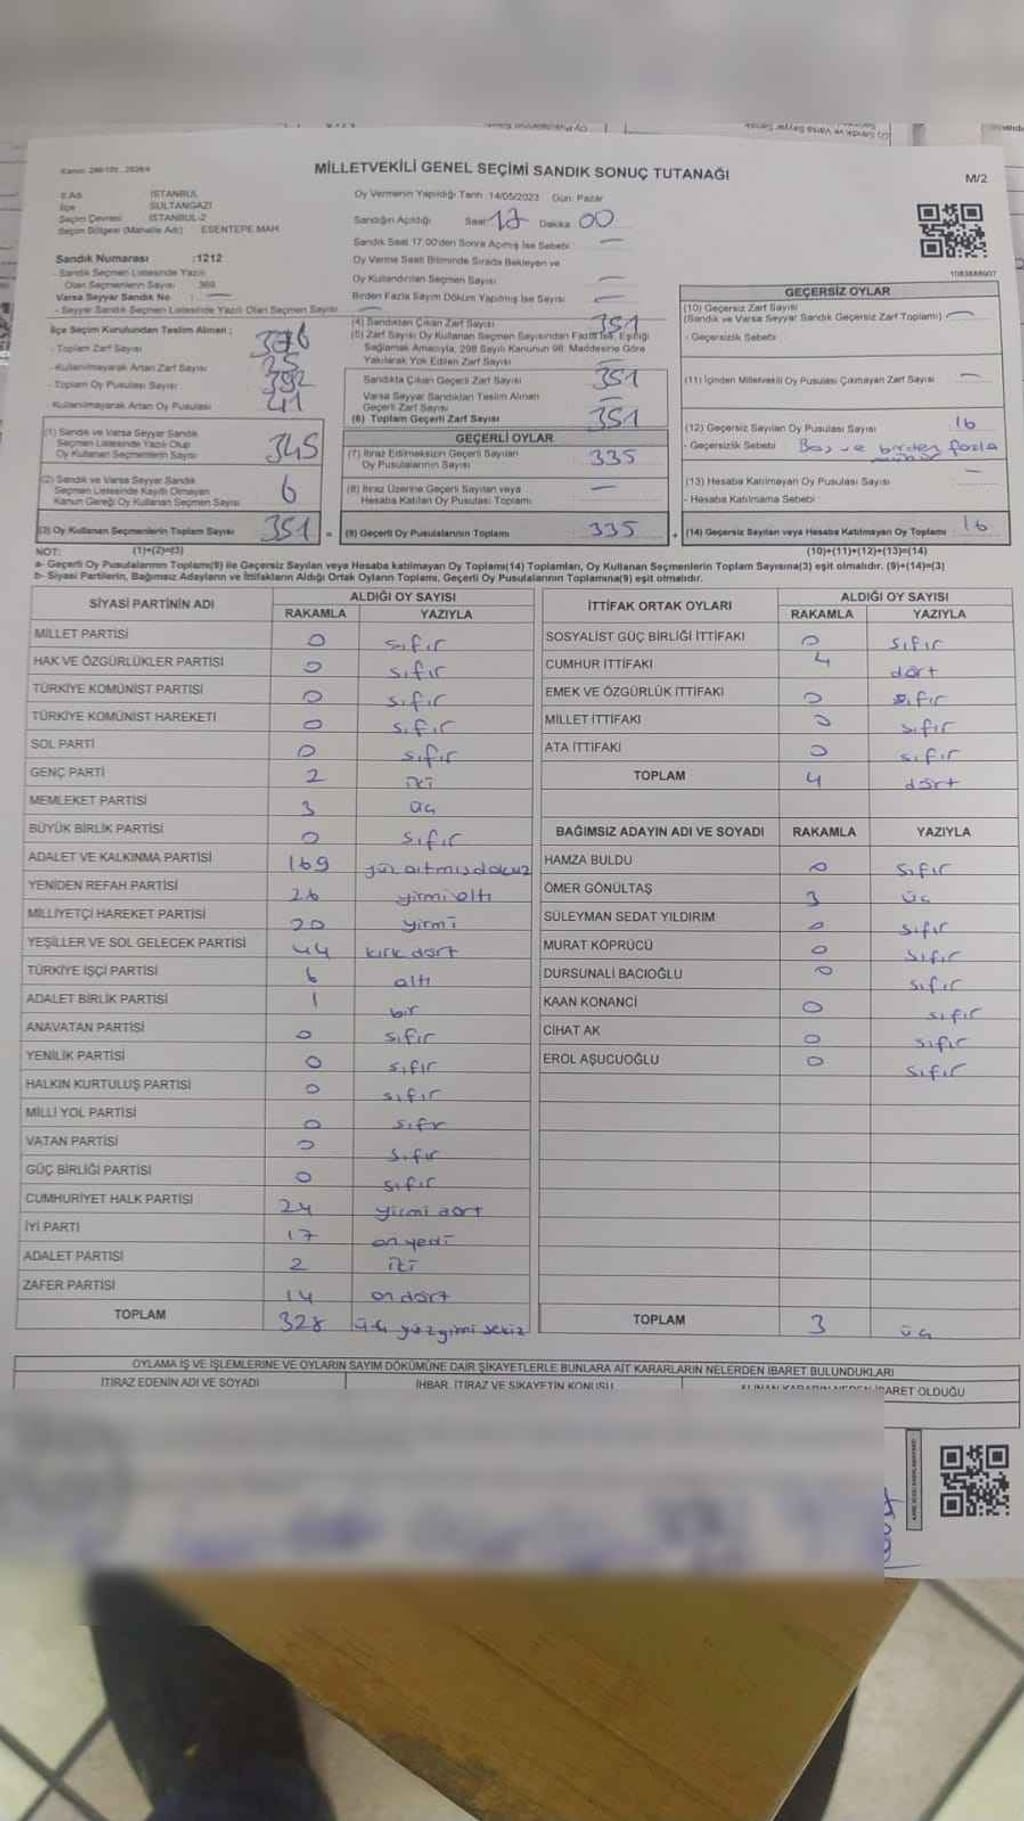 MİLLETVEKİLİ GENEL SEÇİMİ SANDIK SONUÇ TUTANAĞI
M/2
İl Adı İSTANBUL
İlçe SULTANGAZİ
Seçim Çevresi İSTANBUL-2
Seçim Bölgesi (Mahalle Adı) ESENTEPE MAH.
Oy Vermenin Yapıldığı Tarih :14/05/2023 Gün: Pazar
Sandığın Açıldığı Saat 17 Dakika 00
Sandık Saat 17.00'den Sonra Açılmış İse Sebebi : —
Oy Verme Saati Bitiminde Sırada Bekleyen ve
Oy Kullandırılan Seçmen Sayısı —
Birden Fazla Sayım Döküm Yapılmış İse Sayısı —
1083888607
Sandık Numarası :1212
- Sandık Seçmen Listesinde Yazılı
Olan Seçmenlerin Sayısı 369
Varsa Seyyar Sandık No —
- Seyyar Sandık Seçmen Listesinde Yazılı Olan Seçmen Sayısı —
İlçe Seçim Kurulundan Teslim Alınan ;
- Toplam Zarf Sayısı 376
- Kullanılmayarak Artan Zarf Sayısı 25
- Toplam Oy Pusulası Sayısı 392
- Kullanılmayarak Artan Oy Pusulası 41
(1) Sandık ve Varsa Seyyar Sandık
Seçmen Listesinde Yazılı Olup
Oy Kullanan Seçmenlerin Sayısı 345
(2) Sandık ve Varsa Seyyar Sandık
Seçmen Listesinde Kayıtlı Olmayan
Kanun Gereği Oy Kullanan Seçmen Sayısı 6
(3) Oy Kullanan Seçmenlerin Toplam Sayısı 351 =
(4) Sandıktan Çıkan Zarf Sayısı 351
(5) Zarf Sayısı Oy Kullanan Seçmen Sayısından Fazla İse, Eşitliği
Sağlamak Amacıyla, 298 Sayılı Kanunun 98. Maddesine Göre
Yakılarak Yok Edilen Zarf Sayısı —
Sandıkta Çıkan Geçerli Zarf Sayısı 351
Varsa Seyyar Sandıktan Teslim Alınan
Geçerli Zarf Sayısı —
(6) Toplam Geçerli Zarf Sayısı 351
GEÇERLİ OYLAR
(7) İtiraz Edilmeksizin Geçerli Sayılan
Oy Pusulalarının Sayısı 335
(8) İtiraz Üzerine Geçerli Sayılan veya
Hesaba Katılan Oy Pusulası Toplamı —
(9) Geçerli Oy Pusulalarının Toplamı 335 +
GEÇERSİZ OYLAR
(10) Geçersiz Zarf Sayısı
(Sandık ve Varsa Seyyar Sandık Geçersiz Zarf Toplamı) —
- Geçersizlik Sebebi :
(11) İçinden Milletvekili Oy Pusulası Çıkmayan Zarf Sayısı —
(12) Geçersiz Sayılan Oy Pusulası Sayısı 16
- Geçersizlik Sebebi : Boş ve birden fazla
(13) Hesaba Katılmayan Oy Pusulası Sayısı —
- Hesaba Katılmama Sebebi :
(14) Geçersiz Sayılan veya Hesaba Katılmayan Oy Toplamı 16
NOT: (1)+(2)=(3) (10)+(11)+(12)+(13)=(14)
a- Geçerli Oy Pusulalarının Toplamı(9) ile Geçersiz Sayılan veya Hesaba katılmayan Oy Toplamı(14) Toplamları, Oy Kullanan Seçmenlerin Toplam Sayısına(3) eşit olmalıdır. (9)+(14)=(3)
b- Siyasi Partilerin, Bağımsız Adayların ve İttifakların Aldığı Ortak Oyların Toplamı, Geçerli Oy Pusulalarının Toplamına(9) eşit olmalıdır.
SİYASİ PARTİNİN ADI ALDIĞI OY SAYISI
RAKAMLA YAZIYLA
MİLLET PARTİSİ 0 sıfır
HAK VE ÖZGÜRLÜKLER PARTİSİ 0 sıfır
TÜRKİYE KOMÜNİST PARTİSİ 0 sıfır
TÜRKİYE KOMÜNİST HAREKETİ 0 sıfır
SOL PARTİ 0 sıfır
GENÇ PARTİ 2 iki
MEMLEKET PARTİSİ 3 üç
BÜYÜK BİRLİK PARTİSİ 0 sıfır
ADALET VE KALKINMA PARTİSİ 169 yüz altmış dokuz
YENİDEN REFAH PARTİSİ 26 yirmi altı
MİLLİYETÇİ HAREKET PARTİSİ 20 yirmi
YEŞİLLER VE SOL GELECEK PARTİSİ 44 kırk dört
TÜRKİYE İŞÇİ PARTİSİ 6 altı
ADALET BİRLİK PARTİSİ 1 bir
ANAVATAN PARTİSİ 0 sıfır
YENİLİK PARTİSİ 0 sıfır
HALKIN KURTULUŞ PARTİSİ 0 sıfır
MİLLİ YOL PARTİSİ 0 sıfır
VATAN PARTİSİ 0 sıfır
GÜÇ BİRLİĞİ PARTİSİ 0 sıfır
CUMHURİYET HALK PARTİSİ 24 yirmi dört
İYİ PARTİ 17 on yedi
ADALET PARTİSİ 2 iki
ZAFER PARTİSİ 14 on dört
TOPLAM 328 üç yüz yirmi sekiz
İTTİFAK ORTAK OYLARI ALDIĞI OY SAYISI
RAKAMLA YAZIYLA
SOSYALİST GÜÇ BİRLİĞİ İTTİFAKI 0 sıfır
CUMHUR İTTİFAKI 4 dört
EMEK VE ÖZGÜRLÜK İTTİFAKI 0 sıfır
MİLLET İTTİFAKI 0 sıfır
ATA İTTİFAKI 0 sıfır
TOPLAM 4 dört
BAĞIMSIZ ADAYIN ADI VE SOYADI RAKAMLA YAZIYLA
HAMZA BULDU 0 sıfır
ÖMER GÖNÜLTAŞ 3 üç
SÜLEYMAN SEDAT YILDIRIM 0 sıfır
MURAT KÖPRÜCÜ 0 sıfır
DURSUNALİ BACIOĞLU 0 sıfır
KAAN KONANCİ 0 sıfır
CİHAT AK 0 sıfır
EROL AŞUCUOĞLU 0 sıfır
TOPLAM 3 üç
OYLAMA İŞ VE İŞLEMLERİNE VE OYLARIN SAYIM DÖKÜMÜNE DAİR ŞİKAYETLERLE BUNLARA AİT KARARLARIN NELERDEN İBARET BULUNDUKLARI
İTİRAZ EDENİN ADI VE SOYADI İHBAR, İTİRAZ VE ŞİKAYETİN KONUSU İBARET OLDUĞU